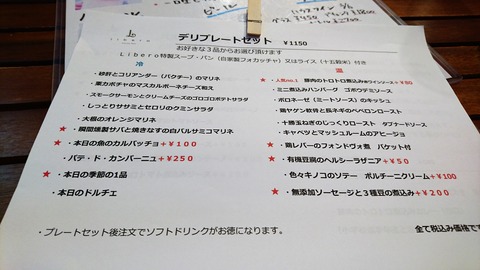 LIBERO
デリプレートセット ￥1150
お好きな３品からお選び頂けます
Ｌｉｂｅｒｏ特製スープ・パン（自家製フォカッチャ）又はライス（十五穀米）付き
冷
・砂肝とコリアンダー（パクチー）のマリネ
・栗カボチャのマスカルポーネチーズ和え
・スモークサーモンとクリームチーズのゴロゴロポテトサラダ
・しっとりササミとセロリのクミンサラダ
・大根のオレンジマリネ
★・瞬間燻製サバと焼きなすの白バルサミコマリネ
★・本日の魚のカルパッチョ＋￥１００
・パテ・ド・カンパーニュ＋￥250
★・本日の季節の1品
・本日のドルチェ
温
★・人気no.1 豚肉のトロトロ煮込み赤ワインソース＋￥50
・ミニ煮込みハンバーグ ゴボウデミソース
・ボロネーゼ（ミートソース）のキッシュ
・鶏ヤゲン軟骨と長ネギのペペロンロースト
・十勝玉ねぎのじっくりロースト タプナードソース
・キャベツとマッシュルームのアヒージョ
★・鶏レバーのフォンドヴォ煮 バケット付
★・有機豆腐のヘルシーラザニア＋￥５０
・色々キノコのソテー ポルチーニクリーム+￥100
★・無添加ソーセージと３種豆の煮込み＋￥２００
・プレートセット後注文でソフトドリンクがお徳になります。
全て税込み価格です